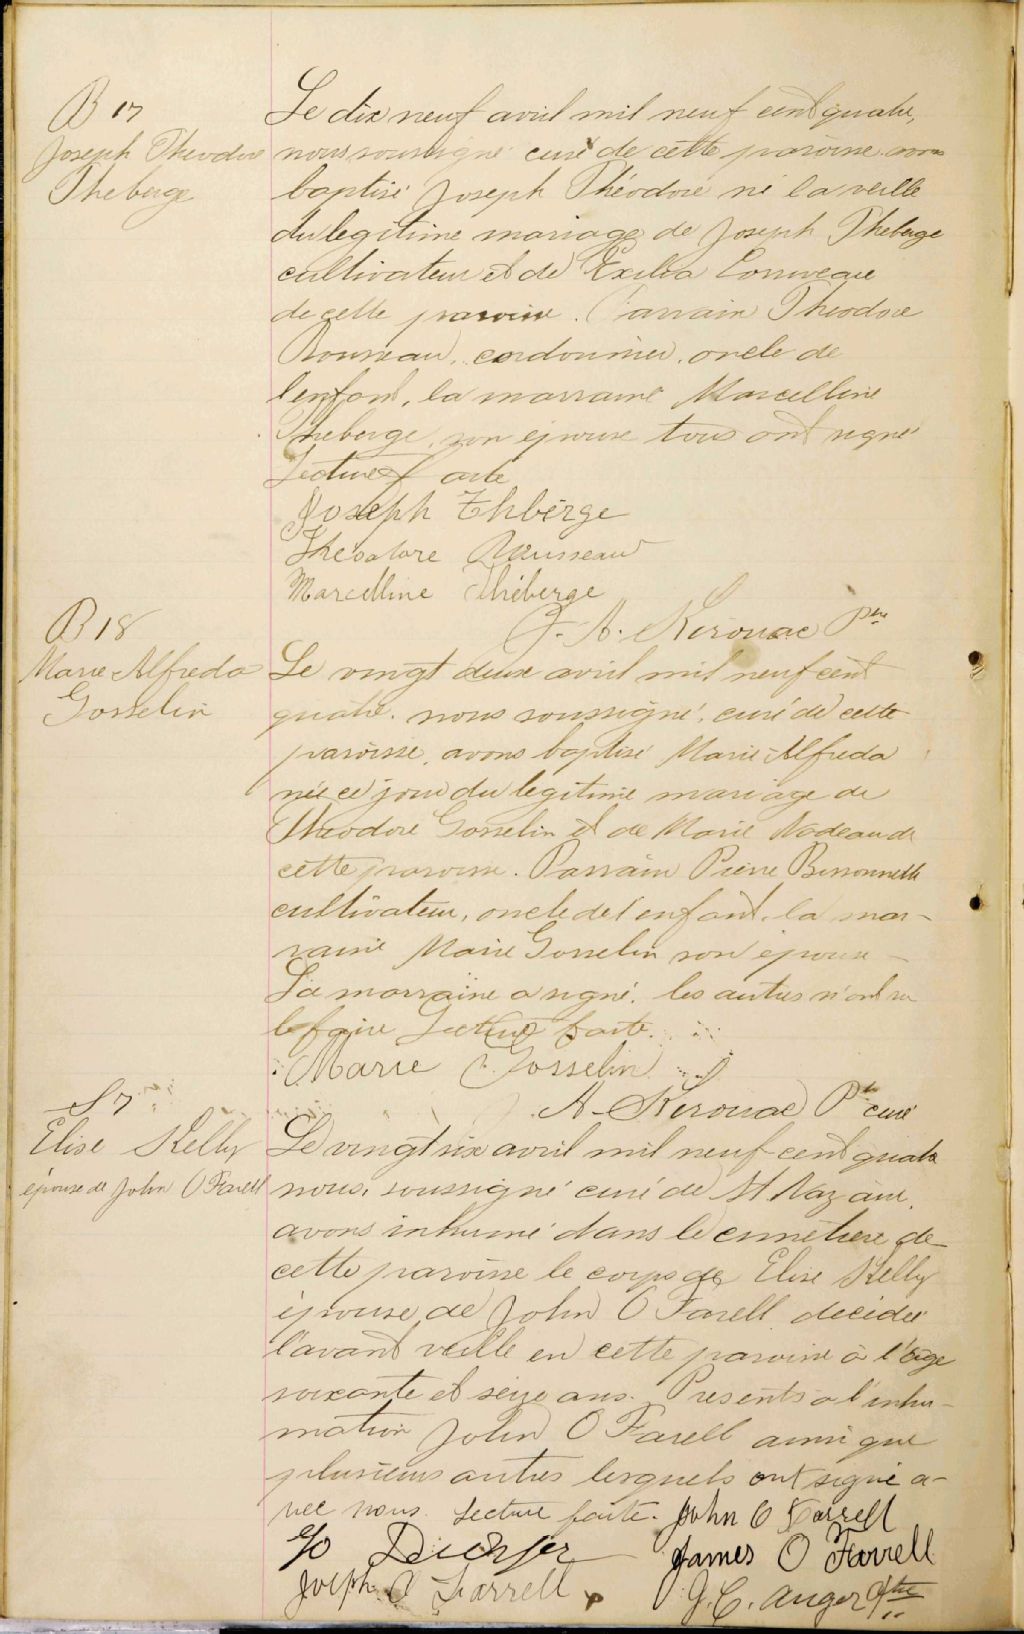 B 17
Joseph Theodore
Theberge
Le dix neuf avril mil neuf cent quatre,
nous soussigné curé de cette paroisse avons
baptisé Joseph Théodore né la veille
du legitime mariage de Joseph Theberge
cultivateur et de Exilia
de cette paroisse. Parrain Theodore
Rousseau, cordonnier, oncle de
l'enfant, la marraine Marcelline
Theberge, son épouse tous ont signé
Lecture faite
Joseph Thberge
Théodore Rousseau
Marcelline Théberge
J. A. Kirouac Ptre
B 18
Marie Alfreda
Gosselin
Le vingt deux avril mil neuf cent
quatre, nous soussigné, curé de cette
paroisse, avons baptisé Marie-Alfreda
née ce jour du legitime mariage de
Theodore Gosselin et de Marie Nadeau de
cette paroisse. Parrain Pierre Bissonnette
cultivateur, oncle de l'enfant, la mar-
raine Marie Gosselin son épouse -
La marraine a signé, les autres n'ont su
le faire Lecture faite.
Marie Gosselin
J. A. Kirouac Ptre curé
S 7
Elise Kelly
épouse de John O Farell
Le vingt six avril mil neuf cent quatre
nous, soussigné curé de St Nazaire,
avons inhumé dans le cimetiere de
cette paroisse le corps de Elise Kelly
épouse de John O Farell décédée
l'avant veille en cette paroisse à l'âge
soixante et seize ans. Presents a l'inhu-
mation John O Farell ainsi que
plusieurs autres lesquels ont signé a-
vec nous. Lecture faite. John O Farrell
James O Farrell
Joseph O Farrell
J. C. Anger Ptre